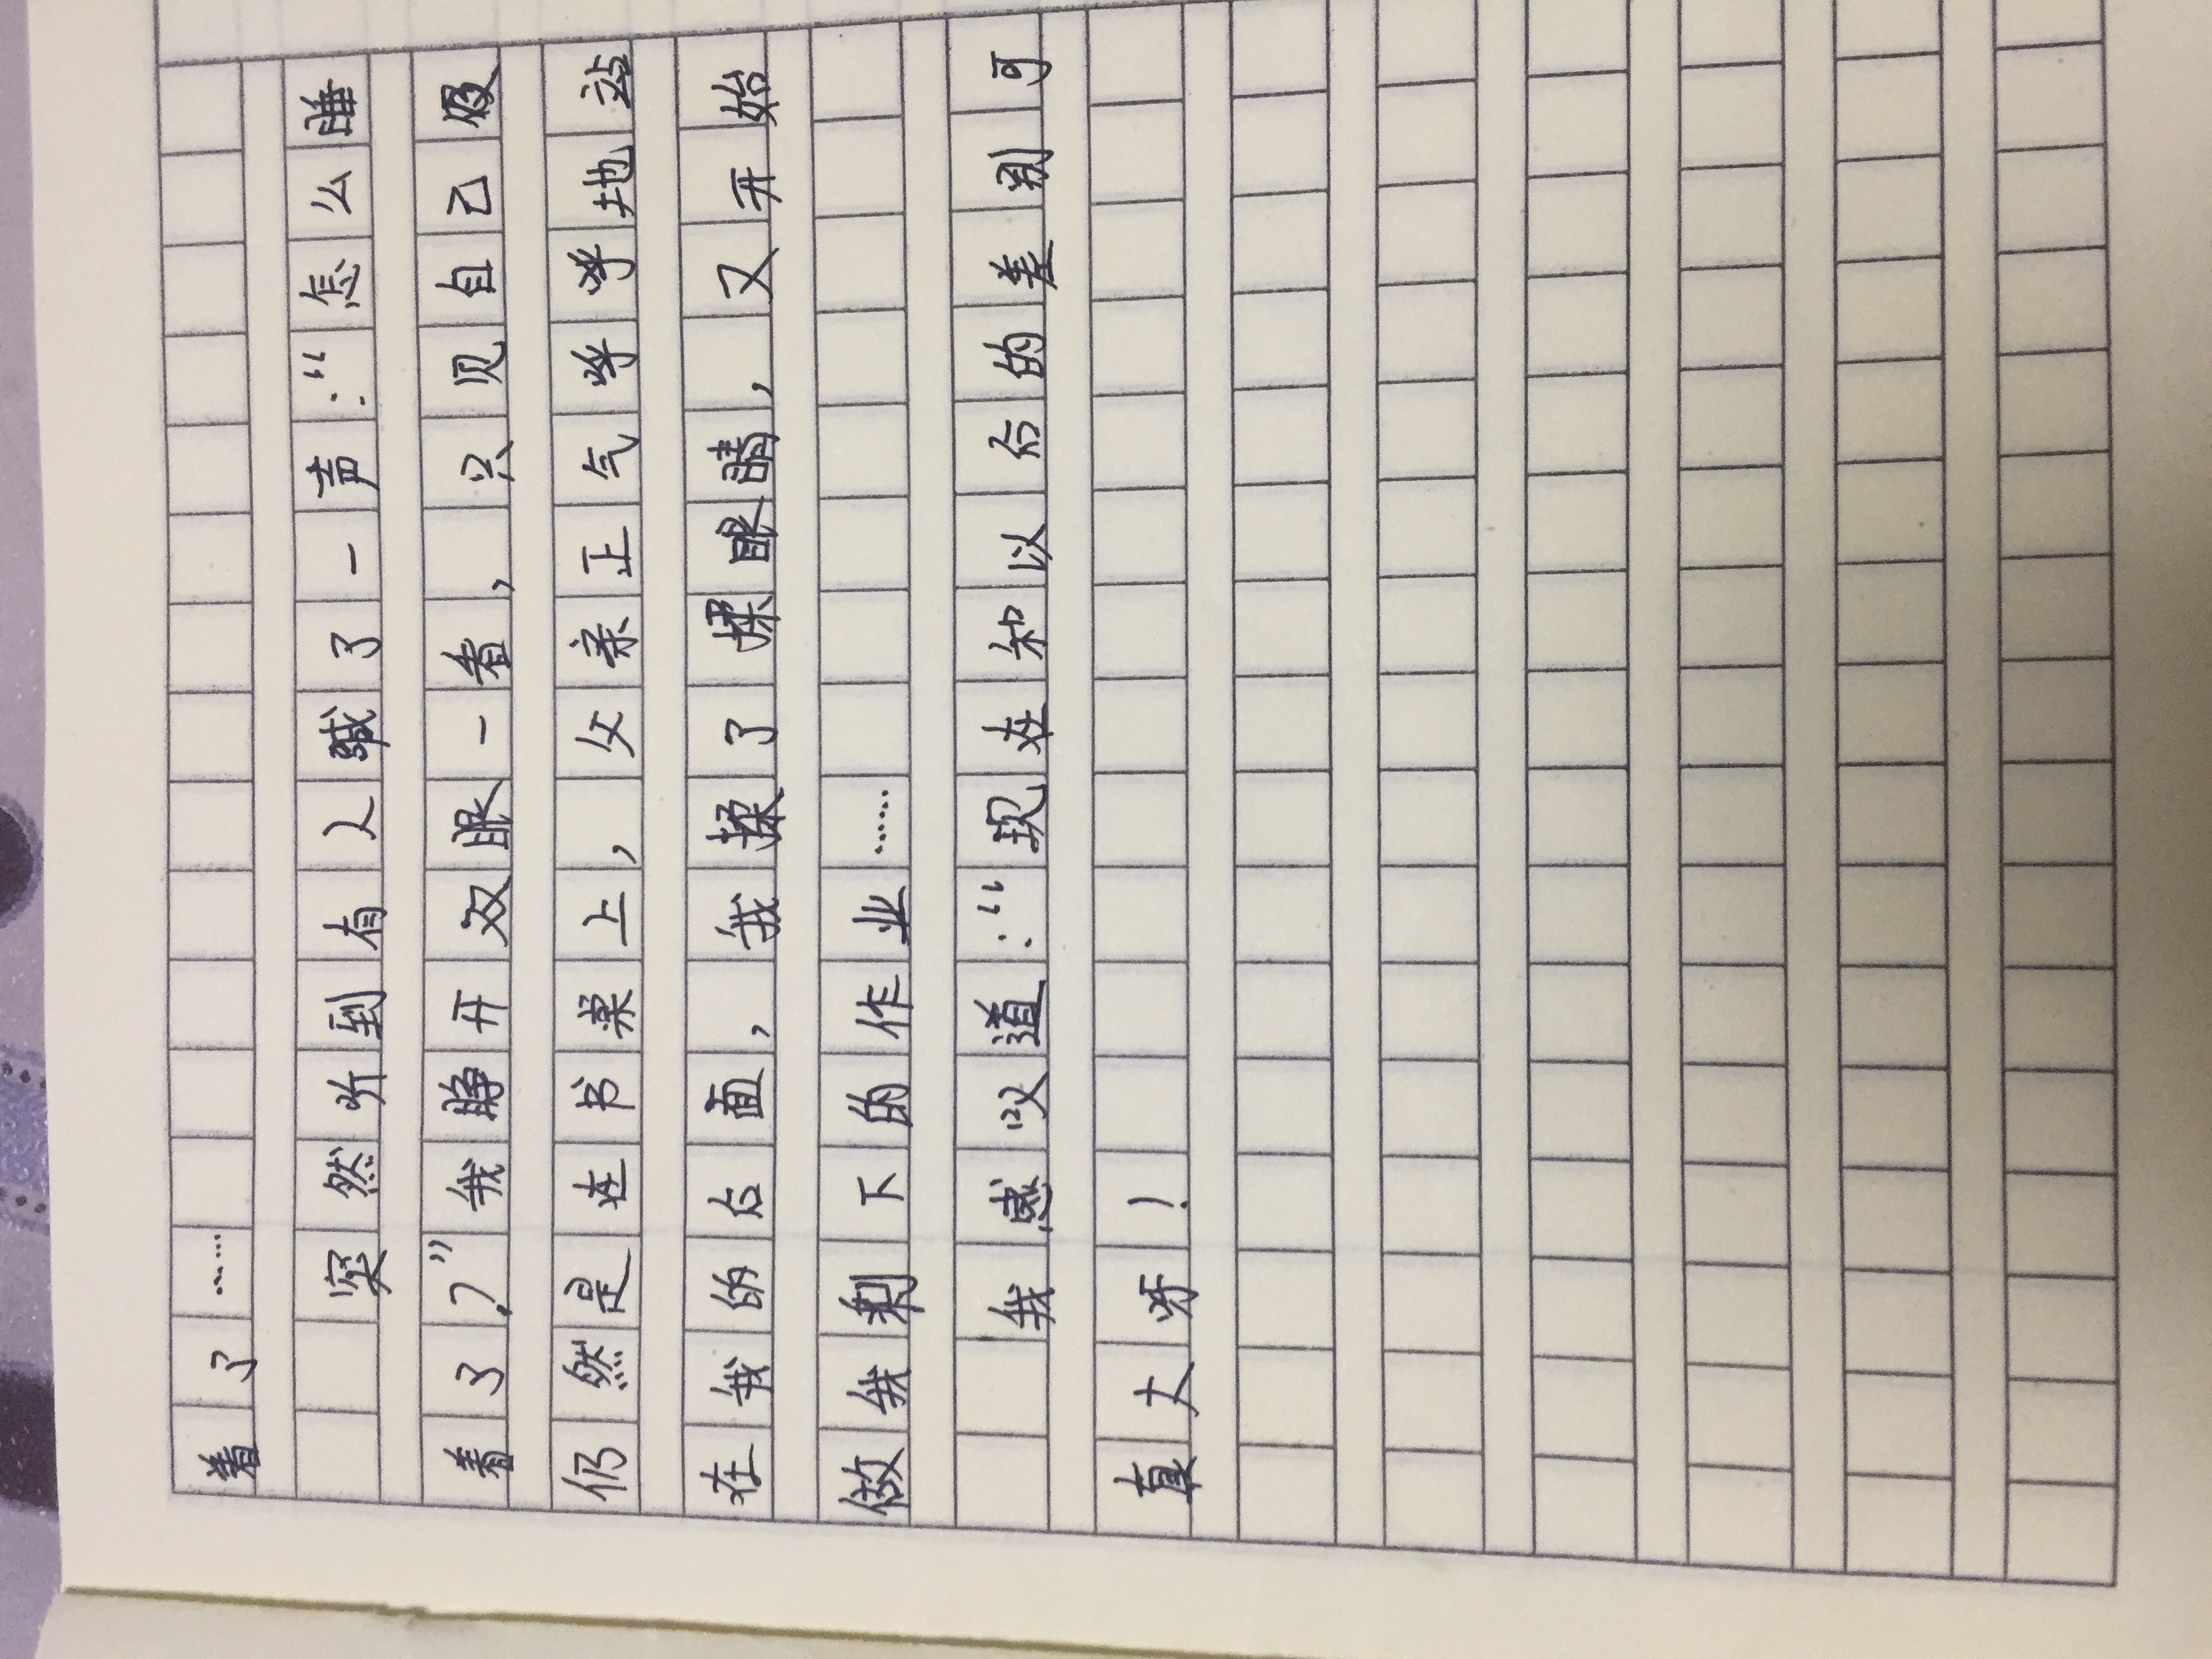 着了……
突然听到有人喊了一声：“怎么睡
着了？”我睁开双眼一看，只见自己
仍然是在书桌上，父亲正气呼呼地站
在我的后面，我揉了揉眼睛，又开始
做我剩下的作业……
我感叹道：“现在和以后的差别可
真大呀！